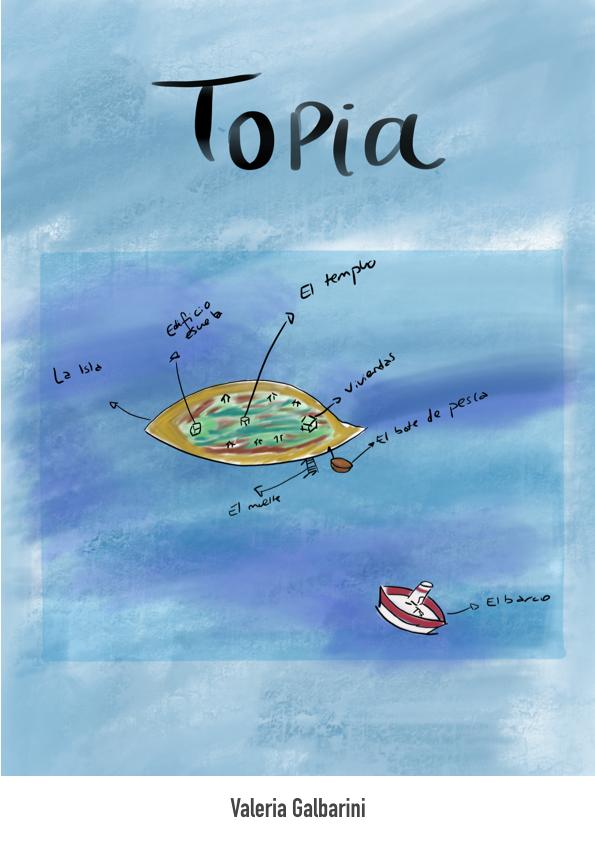 Topia
El templo
Edificio
escuela
La Isla
viviendas
El bote de pesca
El muelle
El barco
Valeria Galbarini